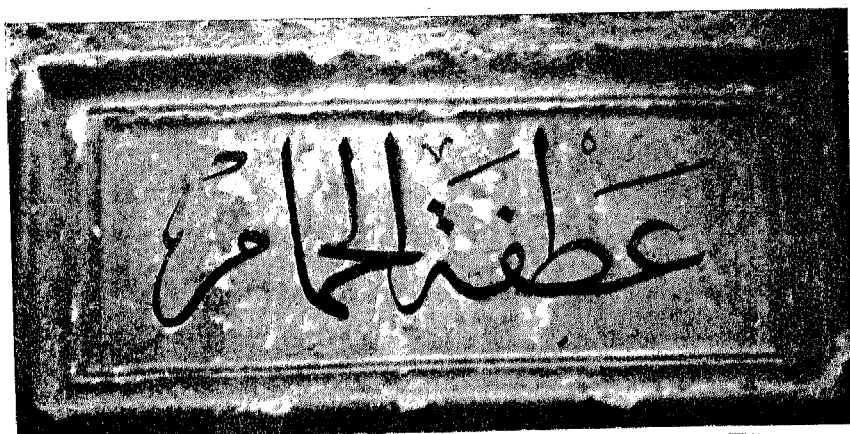 عَطْفَة الحمام